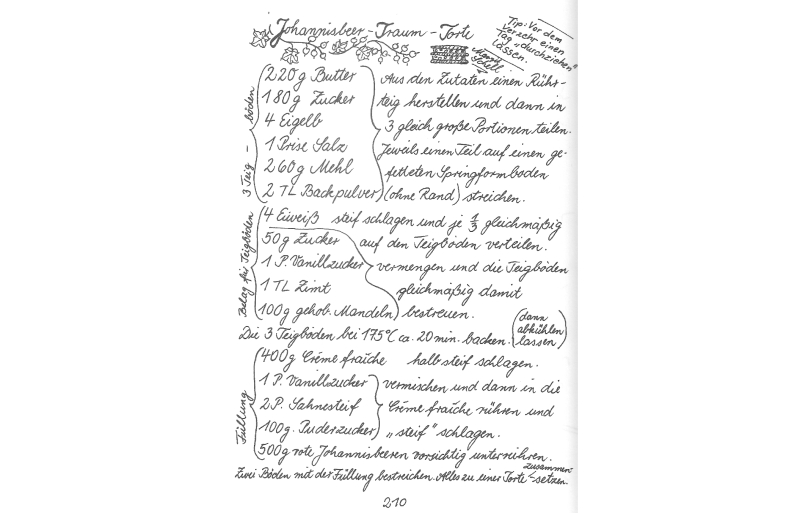 Johannisbeer-Traum-Torte
Tip: Vor dem
Verzehr einen
Tag „durchziehen"
lassen.
220g Butter
180g Zucker
4 Eigelb
1 Prise Salz
260g Mehl
2 TL Backpulver
3 Teig-böden
Aus den Zutaten einen Rühr-
teig herstellen und dann in
3 gleich große Portionen teilen.
Jeweils einen Teil auf einen ge-
fetteten Springformboden
(ohne Rand) streichen.
Belag für Teigböden
4 Eiweiß steif schlagen und je 1/3 gleichmäßig
auf den Teigböden verteilen.
50g Zucker
1 P. Vanillzucker
1 TL Zimt
100g gehob. Mandeln
vermengen und die Teigböden
gleichmäßig damit
bestreuen.
Die 3 Teigböden bei 175°C ca. 20 min. backen. (dann
abkühlen
lassen)
Füllung
400g Créme fraîche halbsteif schlagen.
1 P. Vanillzucker
2 P. Sahnesteif
100g. Puderzucker
vermischen und dann in die
Créme fraîche rühren und
„steif" schlagen.
500g rote Johannisbeeren vorsichtig unterrühren.
Zwei Böden mit der Füllung bestreichen. Alles zu einer Torte zusammen-setzen.
210